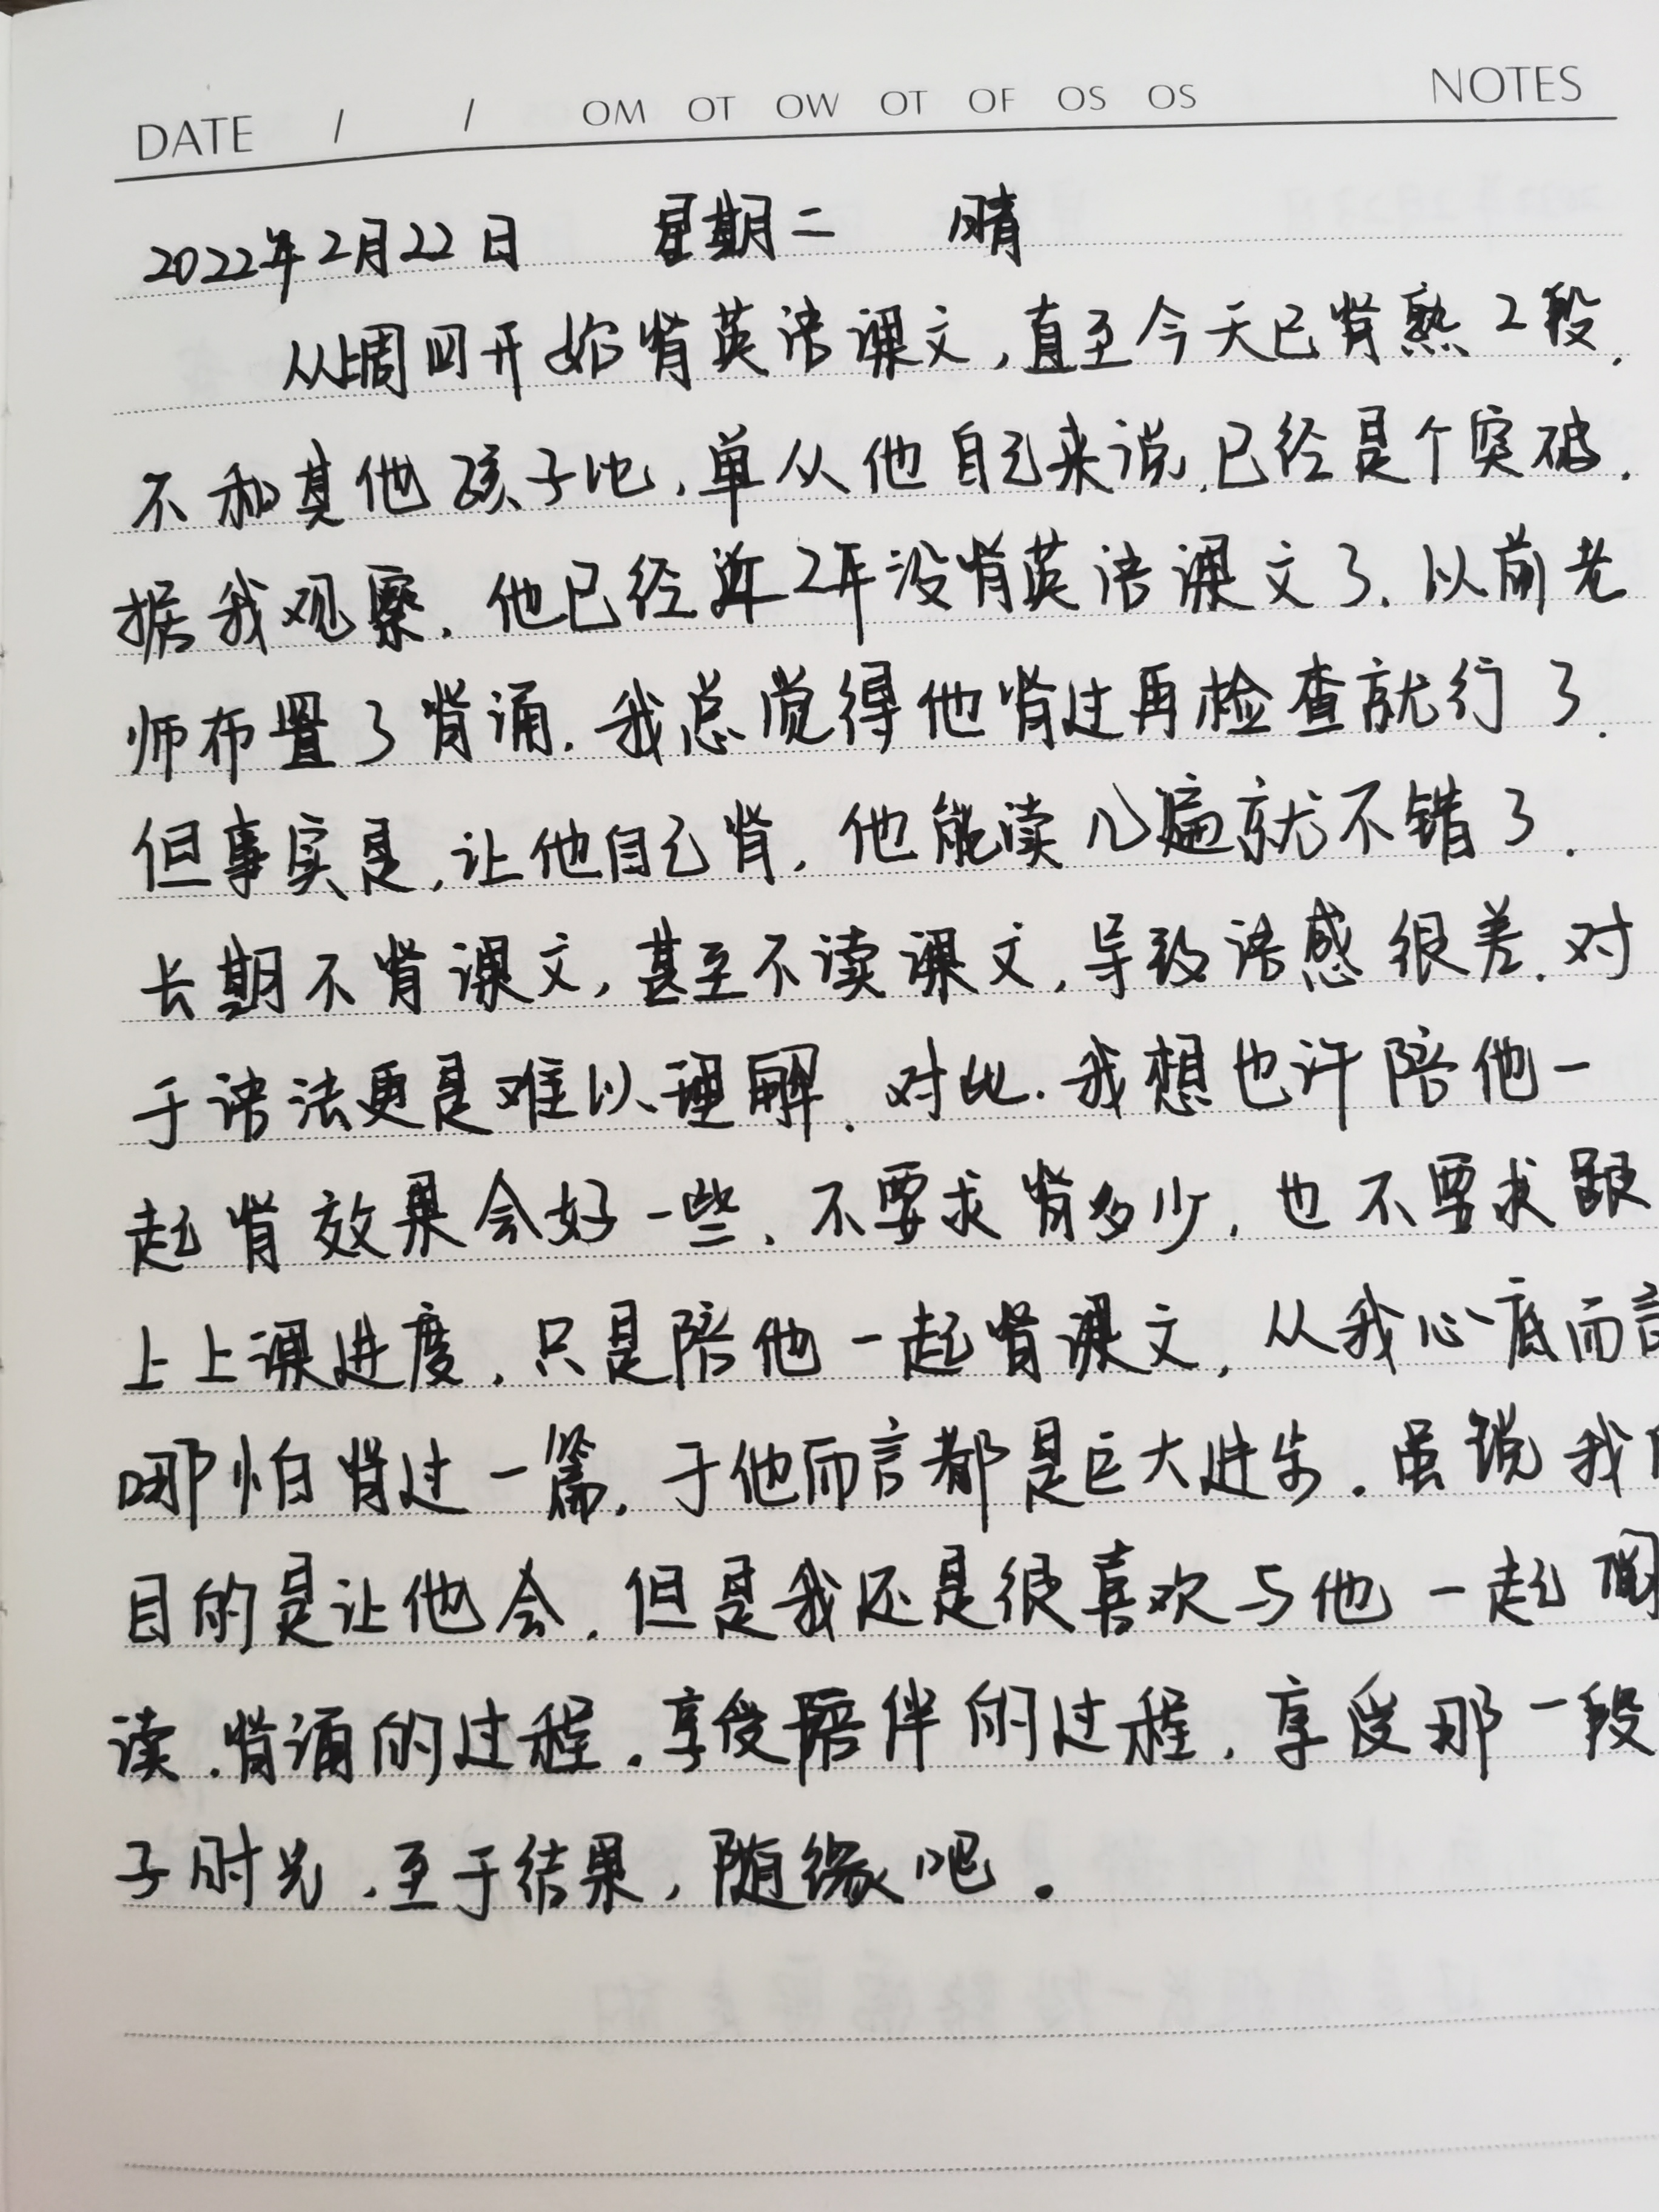 DATE / / OM OT OW OT OF OS OS NOTES
2022年2月22日 星期二 晴
从上周四开始背英语课文,直至今天已背熟2段.
不和其他孩子比,单从他自己来说,已经是个突破.
据我观察.他已经近2年没背英语课文了.以前老
师布置了背诵.我总觉得他背过再检查就行了.
但事实是,让他自己背,他能读几遍就不错了.
长期不背课文,甚至不读课文,导致语感很差.对
于语法更是难以理解.对比.我想也许陪他一
起背效果会好一些,不要求背多少,也不要求跟
上上课进度,只是陪他一起背课文,从我心底而言
哪怕背过一篇,于他而言都是巨大进步.虽说我
目的是让他会.但是我还是很喜欢与他一起
读.背诵的过程.享受陪伴的过程,享受那一段
子时光.至于结果,随缘吧.